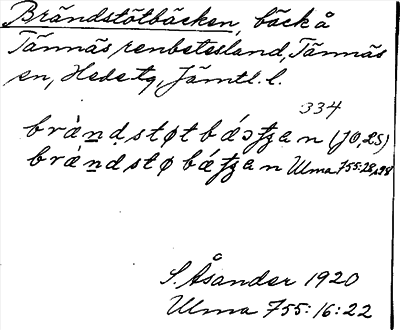 Brändstötbäcken, bäck å
Tännäs renbetesland, Tännäs
sn, Hede tg, Jämtl. l.
334
brä̀n̠ḍstøt bǽɔʈʂen (JO, LS)
brä̀n̠ḍstø bǽʈʂen Ulma 755:28, s98
S. Åsander 1920
Ulma 755:16:22